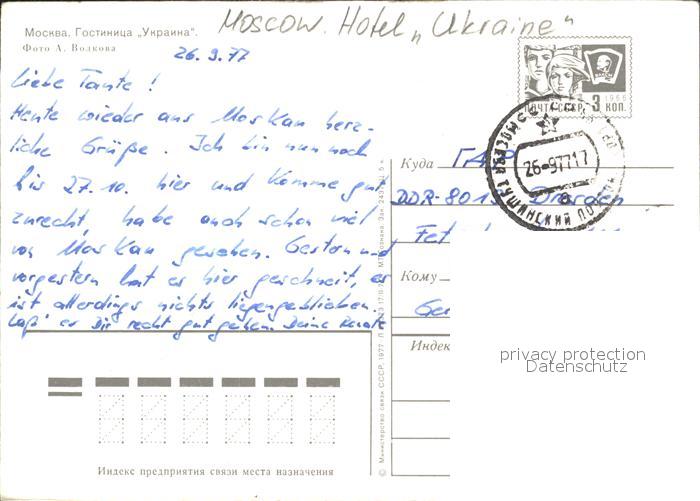 Москва. Гостиница „Украина“.
Moscow. Hotel „Ukraine“
Фото А. Волкова
26.9.77
Liebe Tante!
Heute wieder aus Moskau herz-
liche Grüße. Ich bin nun noch
bis 27.10. hier und komme gut
zurecht, habe auch schon viel
von Moskau gesehen. Gestern und
vorgestern hat es hier geschneit, es
ist allerdings nichts liegengeblieben.
Laß' es Dir recht gut gehen. Deine Renate
ПОЧТА СССР 1966 3 КОП.
26-97717
Куда ГДР
DDR-801 Dresden
Fet
Кому
Ge
Индекс
privacy protection
Datenschutz
© Министерство связи СССР, 1977
Индекс предприятия связи места назначения